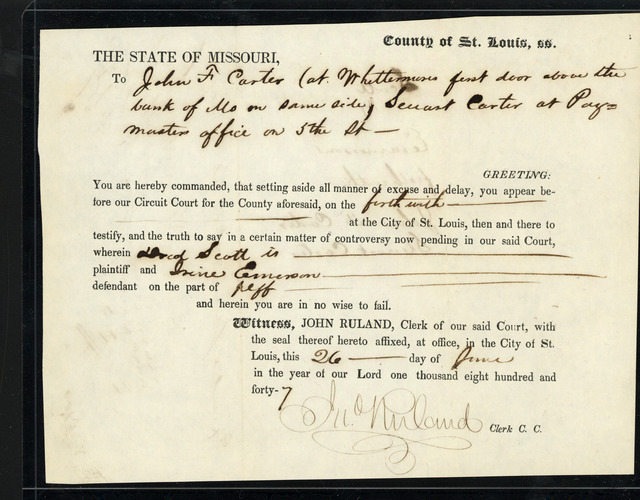 County of St. Louis, ss.
THE STATE OF MISSOURI,
To John F Carter (at Whittermans first door above the
bank of Mo on same side, Carter at Pay=
masters office on 5the St —
GREETING:
You are hereby commanded, that setting aside all manner of excuse and delay, you appear be-
fore our Circuit Court for the County aforesaid, on the forthwith
at the City of St. Louis, then and there to
testify, and the truth to say in a certain matter of controversy now pending in our said Court,
wherein Dred Scott is
plaintiff and Irine Emerson
defendant on the part of plff
and herein you are in no wise to fail.
Witness, JOHN RULAND, Clerk of our said Court, with
the seal thereof hereto affixed, at office, in the City of St.
Louis, this 26 — day of June
in the year of our Lord one thousand eight hundred and
forty-7
Jno Ruland Clerk C. C.